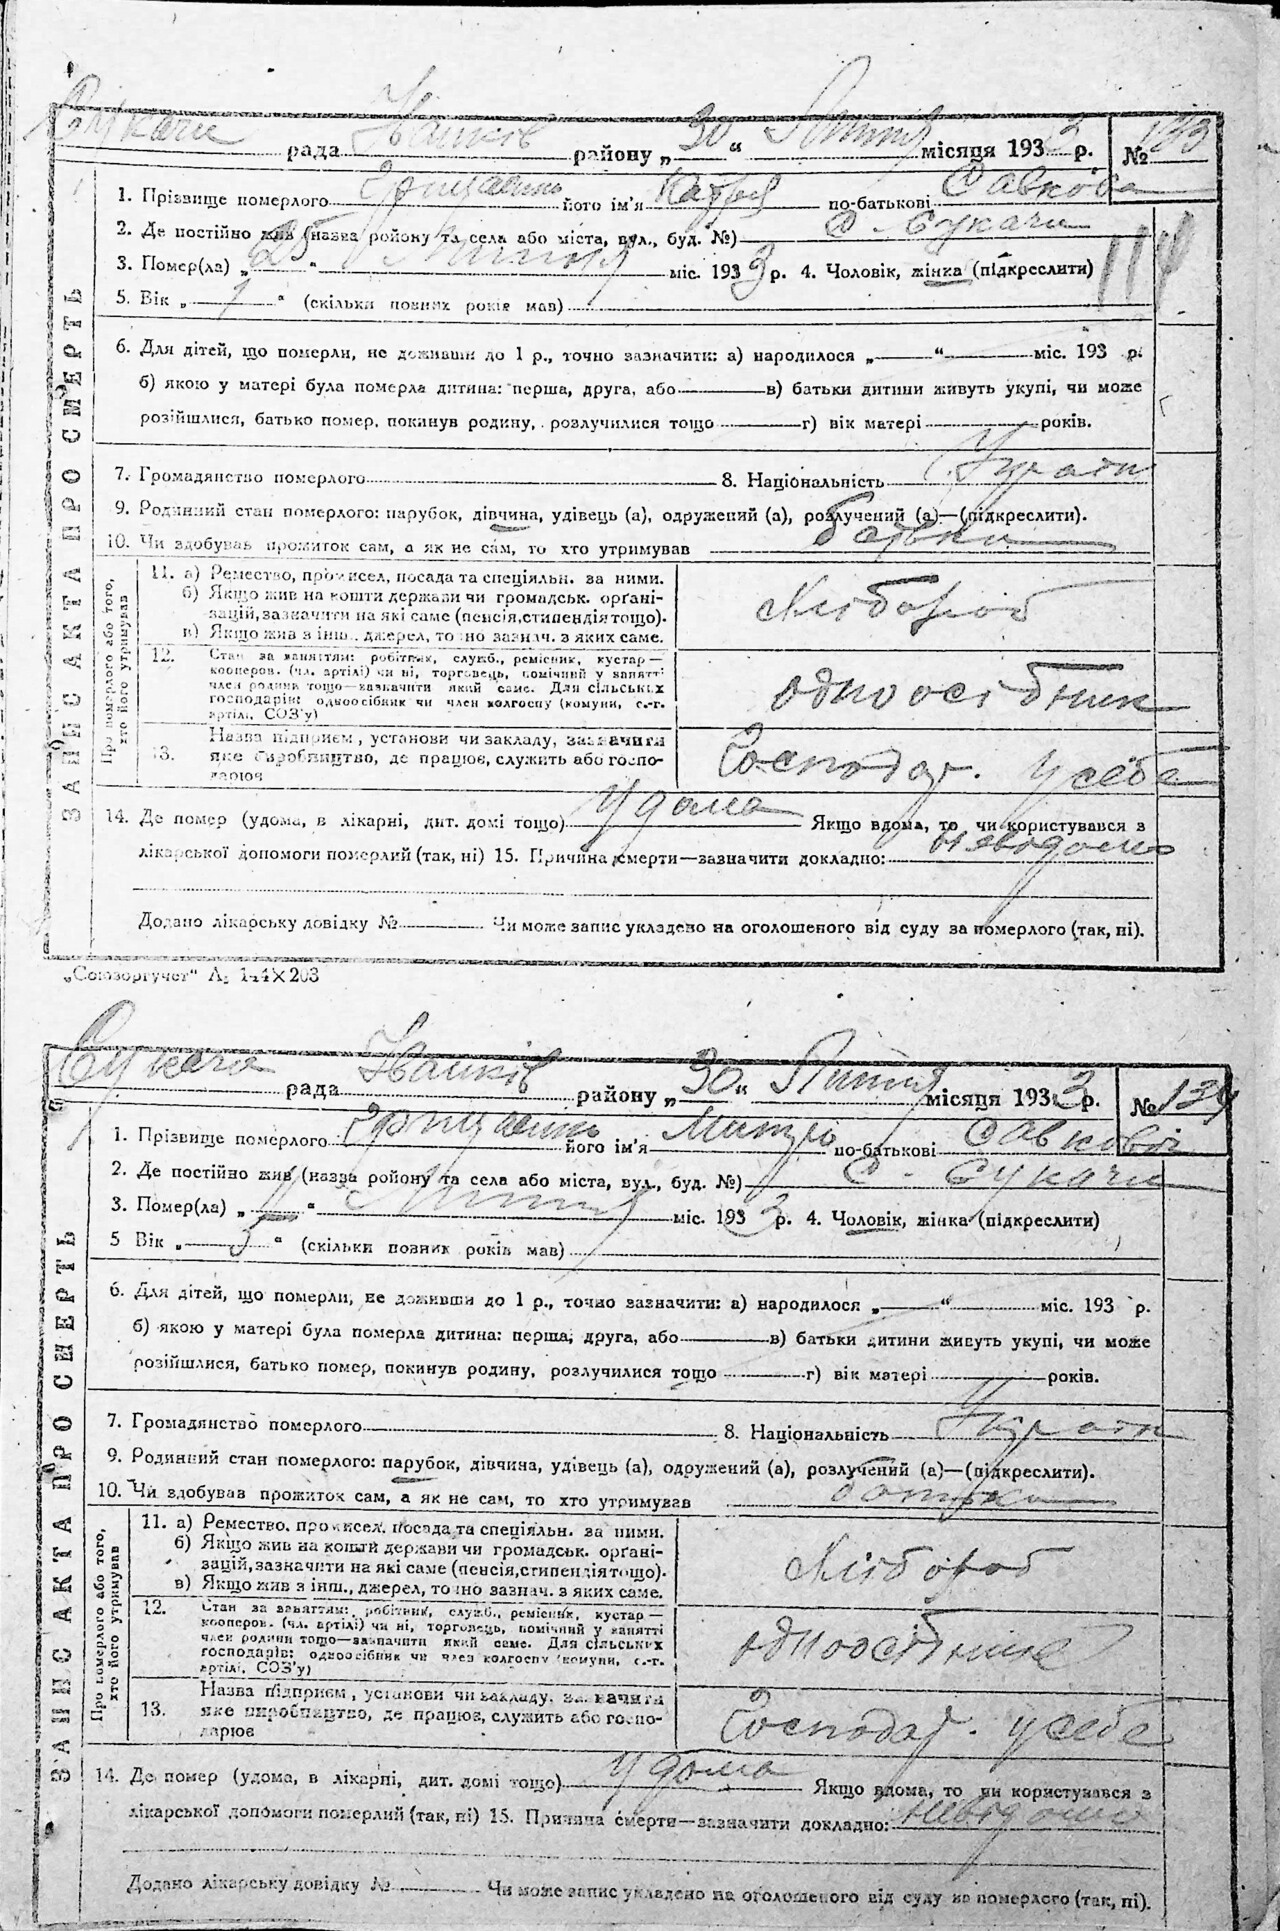 Сукачи рада Іванків району „30“ Липня місяця 1933 р. № 133
1. Прізвище померлого його ім'я Катря по-батькові Савкова
2. Де постійно жив (назва району та села або міста, вул., буд. №) С. Сукачи
3. Помер(ла) „25“ Липня міс. 1933 р. 4. Чоловік, жінка (підкреслити)
5. Вік „1“ (скільки повних років мав)
6. Для дітей, що померли, не доживши до 1 р., точно зазначити: а) народилося „ “ міс. 193 р.
б) якою у матері була померла дитина: перша, друга, або в) батьки дитини живуть укупі, чи може
розійшлися, батько помер, покинув родину, розлучилися тощо г) вік матері років.
7. Громадянство померлого 8. Національність Украін
9. Родинний стан померлого: парубок, дівчина, удівець (а), одружений (а), розлучений (а)—(підкреслити).
10. Чи здобував прожиток сам, а як не сам, то хто утримував батько
ЗАПИС АКТА ПРО СМЕРТЬ
Про померлого або того, хто його утримував
11. а) Ремество, промисел, посада та спеціяльн. за ними.
б) Якщо жив на кошти держави чи громадськ. орґані-
зацій, зазначити на які саме (пенсія, стипендія тощо).
в) Якщо жив з інш. джерел, точно зазнач. з яких саме.
Хлібороб
12. Стан за заняттям: робітник, служб., ремісник, кустар—
кооперов. (чл. артілі) чи ні, торговець, помічний у занятті
член родини тощо—зазначити який саме. Для сільських
господарів: одноосібник чи член колгоспу (комуни, с.-г.
артілі, СОЗ'у)
одноосібник
13. Назва підприєм., установи чи закладу, зазначити
яке виробництво, де працює, служить або госпо-
дарює
Господар. у себе
14. Де помер (удома, в лікарні, дит. домі тощо) у дома Якщо вдома, то чи користувався з
лікарської допомоги померлий (так, ні) 15. Причина смерти—зазначити докладно: невідомо
Додано лікарську довідку № Чи може запис укладено на оголошеного від суду за померлого (так, ні).
„Союзоргучет“ А₅ 144×203
Сукачи рада Іванків району „30“ Липня місяця 1933 р. № 134
1. Прізвище померлого його ім'я по-батькові Савкович
2. Де постійно жив (назва району та села або міста, вул., буд. №) С. Сукачи
3. Помер(ла) „ “ Липня міс. 1933 р. 4. Чоловік, жінка (підкреслити)
5 Вік „5“ (скільки повних років мав)
6. Для дітей, що померли, не доживши до 1 р., точно зазначити: а) народилося „ “ міс. 193 р.
б) якою у матері була померла дитина: перша, друга, або в) батьки дитини живуть укупі, чи може
розійшлися, батько помер, покинув родину, розлучилися тощо г) вік матері років.
7. Громадянство померлого 8. Національність Украін
9. Родинний стан померлого: парубок, дівчина, удівець (а), одружений (а), розлучений (а)—(підкреслити).
10. Чи здобував прожиток сам, а як не сам, то хто утримував батько
ЗАПИС АКТА ПРО СМЕРТЬ
Про померлого або того, хто його утримував
11. а) Ремество, промисел, посада та спеціяльн. за ними.
б) Якщо жив на кошти держави чи громадськ. орґані-
зацій, зазначити на які саме (пенсія, стипендія тощо).
в) Якщо жив з інш., джерел, точно зазнач. з яких саме.
Хлібороб
12. Стан за заняттям: робітник, служб., ремісник, кустар—
кооперов. (чл. артілі) чи ні, торговець, помічний у занятті
член родини тощо—зазначити який саме. Для сільських
господарів: одноосібник чи член колгоспу (комуни, с.-г.
артілі, СОЗ'у)
одноосібник
13. Назва підприєм., установи чи закладу, зазначити
яке виробництво, де працює, служить або госпо-
дарює
Господар. у себе
14. Де помер (удома, в лікарні, дит. домі тощо) у дома Якщо вдома, то чи користувався з
лікарської допомоги померлий (так, ні) 15. Причина смерти—зазначити докладно: невідомо
Додано лікарську довідку № Чи може запис укладено на оголошеного від суду за померлого (так, ні).